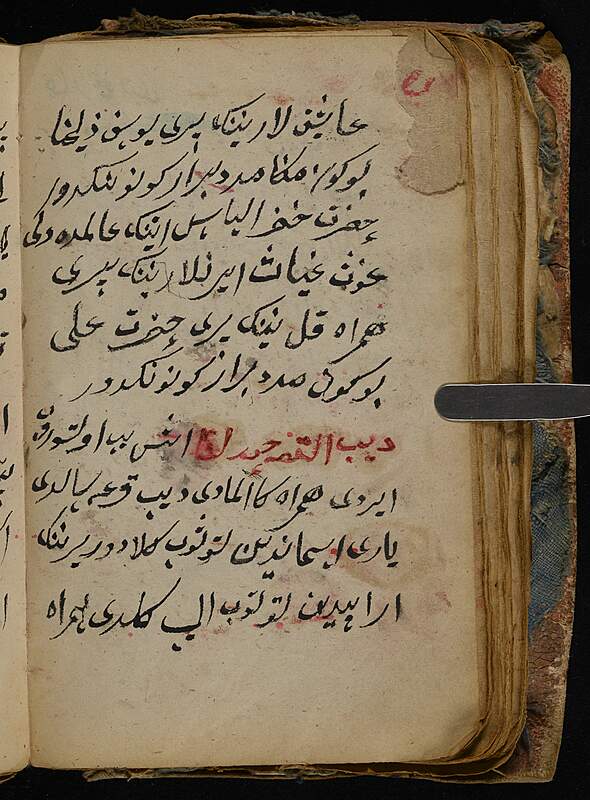 عاشق لارنینک پیری یوسف ذلیخا
بوکون مکا مدد براز کونونکدور
حضرت خضر الیاس اینک عالمده ولی
غوث غیاث ایرنلارنینک پیری
همراه قل نینک پری حضرت علی
بوکون مدد براز کونونکدور
دیب القصه اولتوروق
ایردی همراه کا المادی دیب قرعه سالدی
یاری اسماندین توتوب کلادور یرنینک
اراسیدین توتوب الیب کلدی همراه